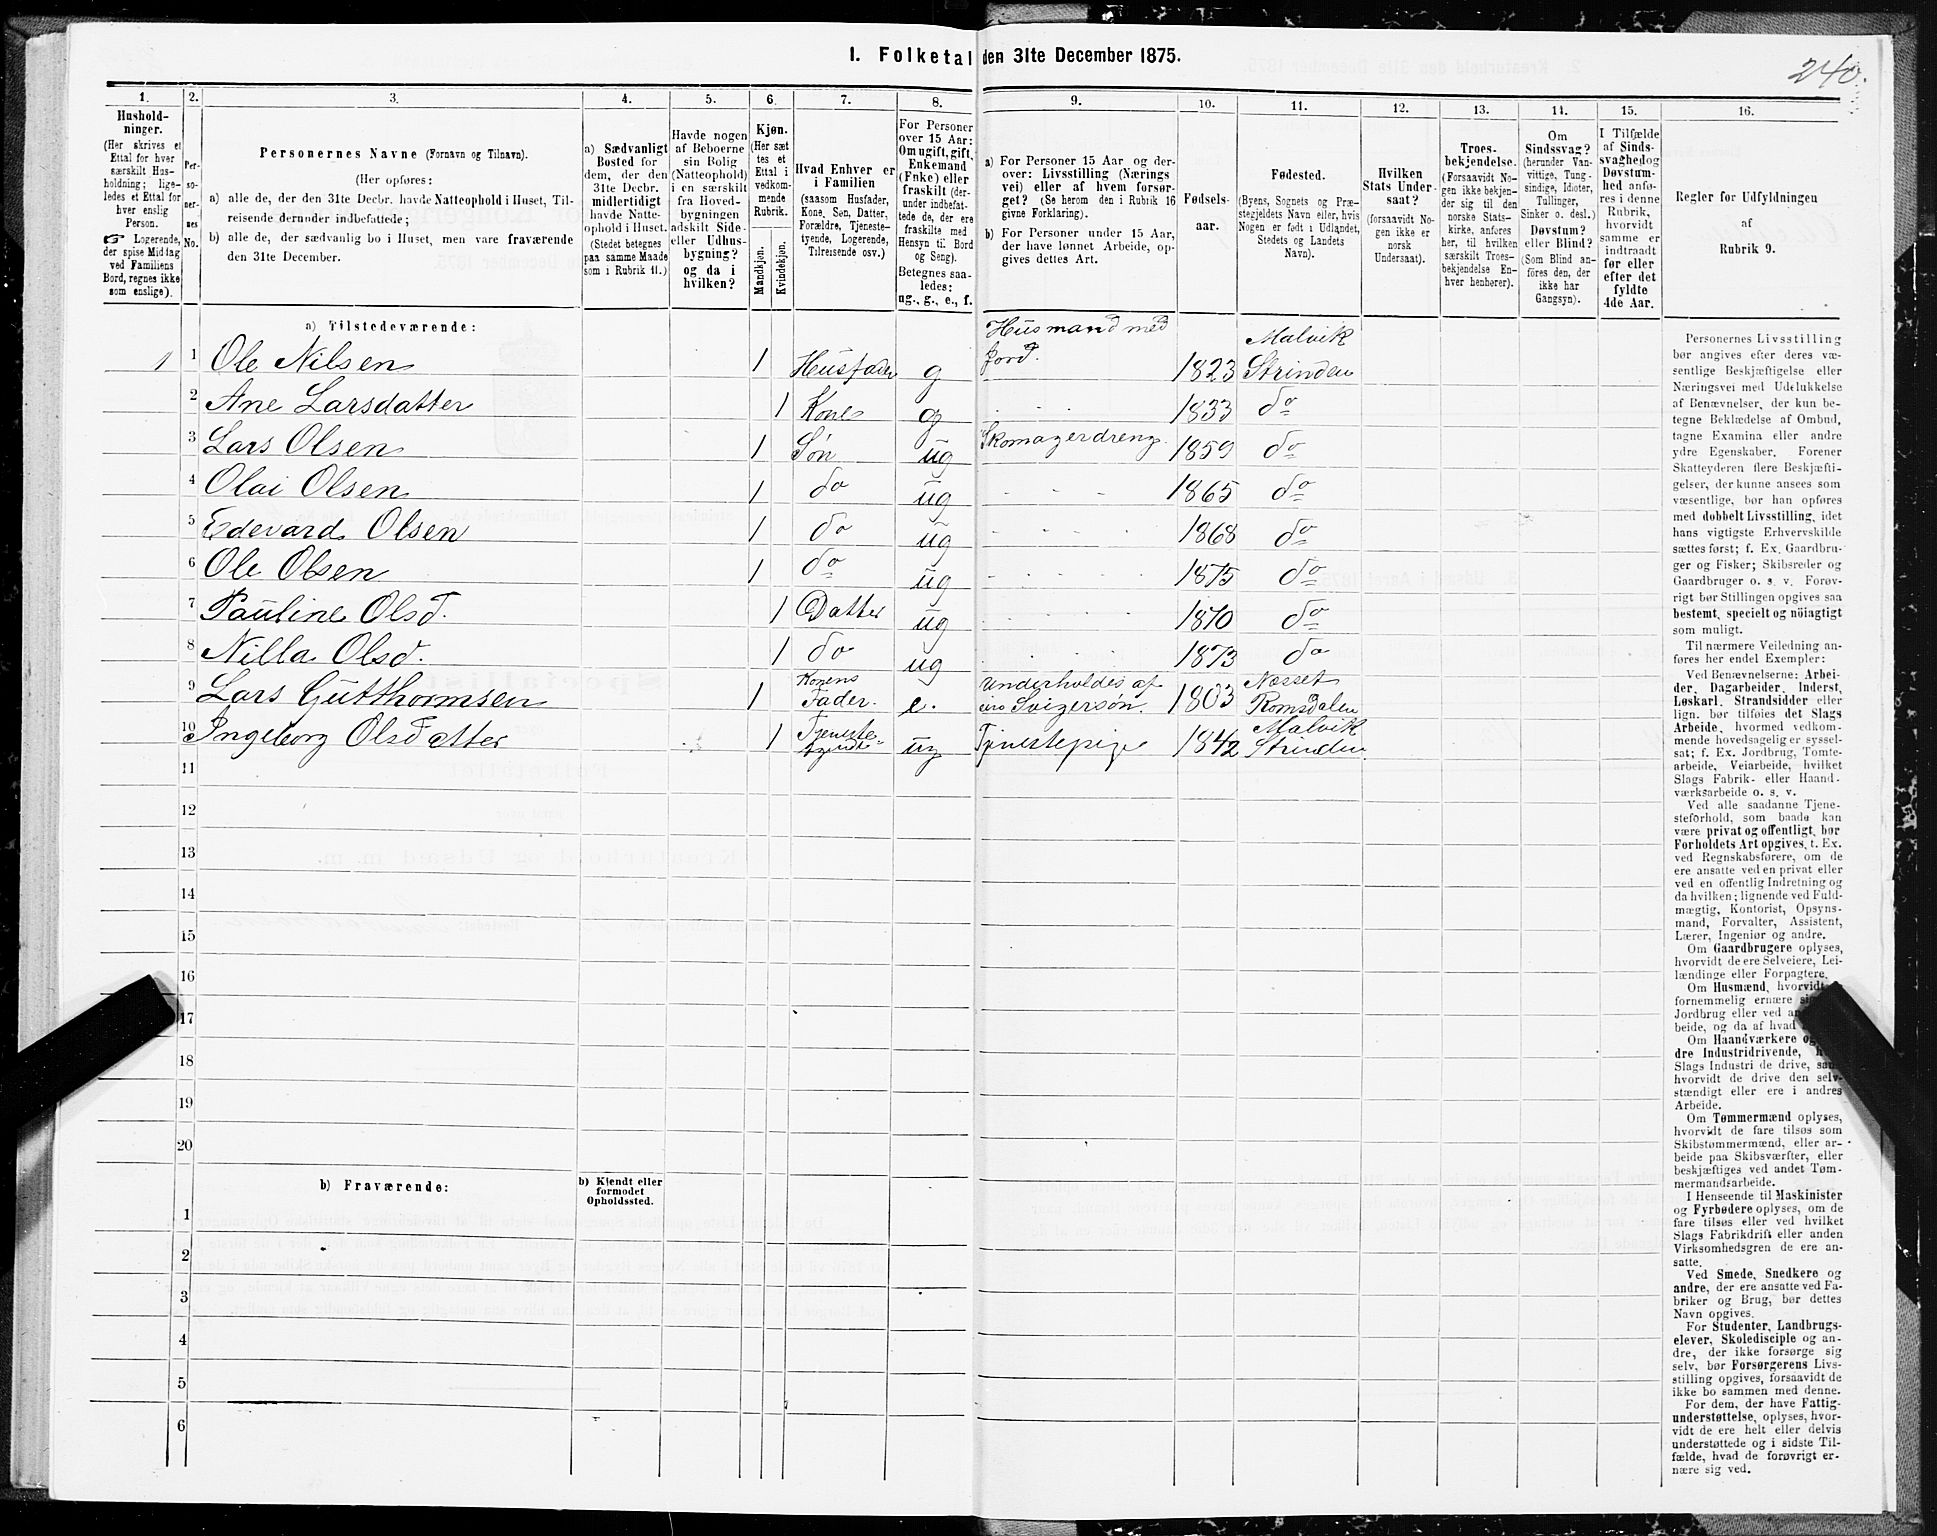 I. Folketal den 31te December 1875.
240.
1. 2. 3. 4. 5. 6. 7. 8. 9. 10. 11. 12. 13. 14. 15. 16.
Hushold-
ninger.
(Her skrives et
Ettal for hver
særskilt Hus-
holdning; lige-
ledes et Ettal for
hver enslig
Person.
☞ Logerende,
der spise Middag
ved Familiens
Bord, regnes ikke
som enslige).
Per-
so-
ner-
nes
No.
Personernes Navne (Fornavn og Tilnavn).
(Her opføres:
a) alle de, der den 31te Decbr. havde Natteophold i Huset, Til-
reisende derunder indbefattede;
b) alle de, der sædvanlig bo i Huset, men vare fraværende
den 31te December.
a) Sædvanligt
Bosted for
dem, der den
31te Decbr.
midlertidigt
havde Natte-
ophold i Huset.
(Stedet betegnes
paa samme Maade
som i Rubrik 11.)
Havde nogen
af Beboerne
sin Bolig
(Natteophold)
i en særskilt
fra Hoved-
bygningen
adskilt Side-
eller Udhus-
bygning?
og da i
hvilken?
Kjøn.
(Her sæt-
tes et
Ettal i
vedkom-
mende
Rubrik.
Mandkjøn.
Kvindekjøn.
Hvad Enhver er
i Familien
(saasom Husfader,
Kone, Søn, Datter,
Forældre, Tjeneste-
tyende, Logerende,
Tilreisende osv.)
For Personer
over 15 Aar:
Om ugift, gift,
Enkemand
(Enke) eller
fraskilt (der-
under indbefat-
tede de, der ere
fraskilte med
Hensyn til Bord
og Seng).
Betegnes saa-
ledes:
ug., g., e., f.
a) For Personer 15 Aar og der-
over: Livsstilling (Nærings-
vei) eller af hvem forsør-
get? (Se herom den i Rubrik 16
givne Forklaring).
b) For Personer under 15 Aar,
der have lønnet Arbeide, op-
gives dettes Art.
Fødsels-
aar.
Fødested.
(Byens, Sognets og Præ-
stegjeldets Navn eller, hvis
Nogen er født i Udlandet,
Stedets og Landets
Navn).
Hvilken
Stats Under-
saat?
(forsaavidt No-
gen ikke er
norsk
Undersaat).
Troes-
bekjendelse.
(Forsaavidt No-
gen ikke bekjen-
der sig til den
norske Stats-
kirke, anføres
her, til hvilken
særskilt Troes-
bekjendelse En-
hver henhører).
Om
Sindssvag?
(herunder Van-
vittige, Tung-
sindige, Idioter,
Tullinger,
Sinker o. desl.)
Døvstum?
eller Blind?
(Som Blind an-
føres den, der
ikke har
Gangsyn).
I Tilfælde
af Sinds-
svaghed og
Døvstum-
hed anfø-
res i denne
Rubrik,
hvorvidt
samme er
indtraadt
før eller
efter det
fyldte
4de Aar.
Regler for Udfyldningen
af
Rubrik 9.
a) Tilstedeværende:
1 1 Ole Nilsen 1 Husfader g Husmand med Jord. 1823 Malvik Strinden
2 Ane Larsdatter 1 Kone g - - 1833 do
3 Lars Olsen 1 Søn ug Skomagerdreng. 1859 do
4 Olai Olsen 1 do ug - - - 1865 do
5 Edevard Olsen 1 do ug - - - 1868 do
6 Ole Olsen 1 do ug - - - 1875 do
7 Pauline Olsd. 1 Datter ug - - - 1870 do
8 Nilla Olsd. 1 do ug - - - 1873 do
9 Lars Gutthormsen 1 Konens Fader. e. Underholdes af Svigersøn. 1803 Næsset Romsdalen
10 Ingeborg Olsdatter 1 Tjeneste- tyende ug Tjenestepige 1842 Malvik Strinden
11
12
13
14
15
16
17
18
19
20
b) Fraværende:
b) Kjendt eller
formodet
Opholdssted.
1
2
3
4
5
6
Personernes Livsstilling
bør angives efter deres væ-
sentlige Beskjæftigelse eller
Næringsvei med Udelukkelse
af Benævnelser, der kun be-
tegne Beklædelse af Ombud,
tagne Examina eller andre
ydre Egenskaber. Forener
Skatteyderen flere Beskjæfti-
gelser, der kunne ansees som
væsentlige, bør han opføres
med dobbelt Livsstilling, idet
hans vigtigste Erhvervskilde
sættes først; f. Ex. Gaardbru-
ger og Fisker; Skibsreder og
Gaardbruger o. s. v. Forøv-
rigt bør Stillingen opgives saa
bestemt, specielt og nöiagtigt
som muligt.
Til nærmere Veiledning an-
føres her endel Exempler:
Ved Benævnelserne: Arbei-
der, Dagarbeider, Inderst,
Løskarl, Strandsidder eller
lign. bør tilføies det Slags
Arbeide, hvormed vedkom-
mende hovedsagelig er syssel-
sat; f. Ex. Jordbrug, Tomte-
arbeide, Veiarbeide, hvilket
Slags Fabrik- eller Haand-
værksarbeide o. s. v.
Ved alle saadanne Tjene-
steforhold, som baade kan
være privat og offentligt, bør
Forholdets Art opgives, t. Ex.
ved Regnskabsførere, om de
ere ansatte ved en privat eller
ved en offentlig Indretning og
da hvilken; lignende ved Fuld-
mægtig, Kontorist, Opsyns-
mand, Forvalter, Assistent,
Lærer, Ingeniør og andre.
Om Gaardbrugere oplyses,
hvorvidt de ere Selveiere, Lei-
lændinge eller Forpagtere.
Om Husmænd, hvorvidt
fornemmelig ernære
Jordbrug eller ved
beide, og da af hvad
Om Haandværkere
dre Industridrivende,
Slags Industri de drive,
hvorvidt de drive den selv-
stændigt eller ere i andres
Arbeide.
Om Tømmermænd oplyses,
hvorvidt de fare tilsøs som
Skibstømmermænd, eller ar-
beide paa Skibsværfter, eller
beskjæftiges ved andet Tøm-
mermandsarbeide.
I Henseende til Maskinister
og Fyrbødere oplyses, om de
fare tilsøs eller ved hvilket
Slags Fabrikdrift eller anden
Virksomhedsgren de ere an-
satte.
Ved Smede, Snedkere og
andre, der ere ansatte ved Fa-
briker og Brug, bør dettes
Navn opgives.
For Studenter, Landbrugs-
elever, Skoledisciple og an-
dre, der ikke forsørge sig
selv, bør Forsørgerens Livs-
stilling opgives, forsaavidt de
ikke bo sammen med denne.
For dem, der have Fattig-
understøttelse, oplyses, hvor-
vidt de ere helt eller delvis
understøttede og i sidste Til-
fælde, hvad de forøvrigt er-
nære sig ved.